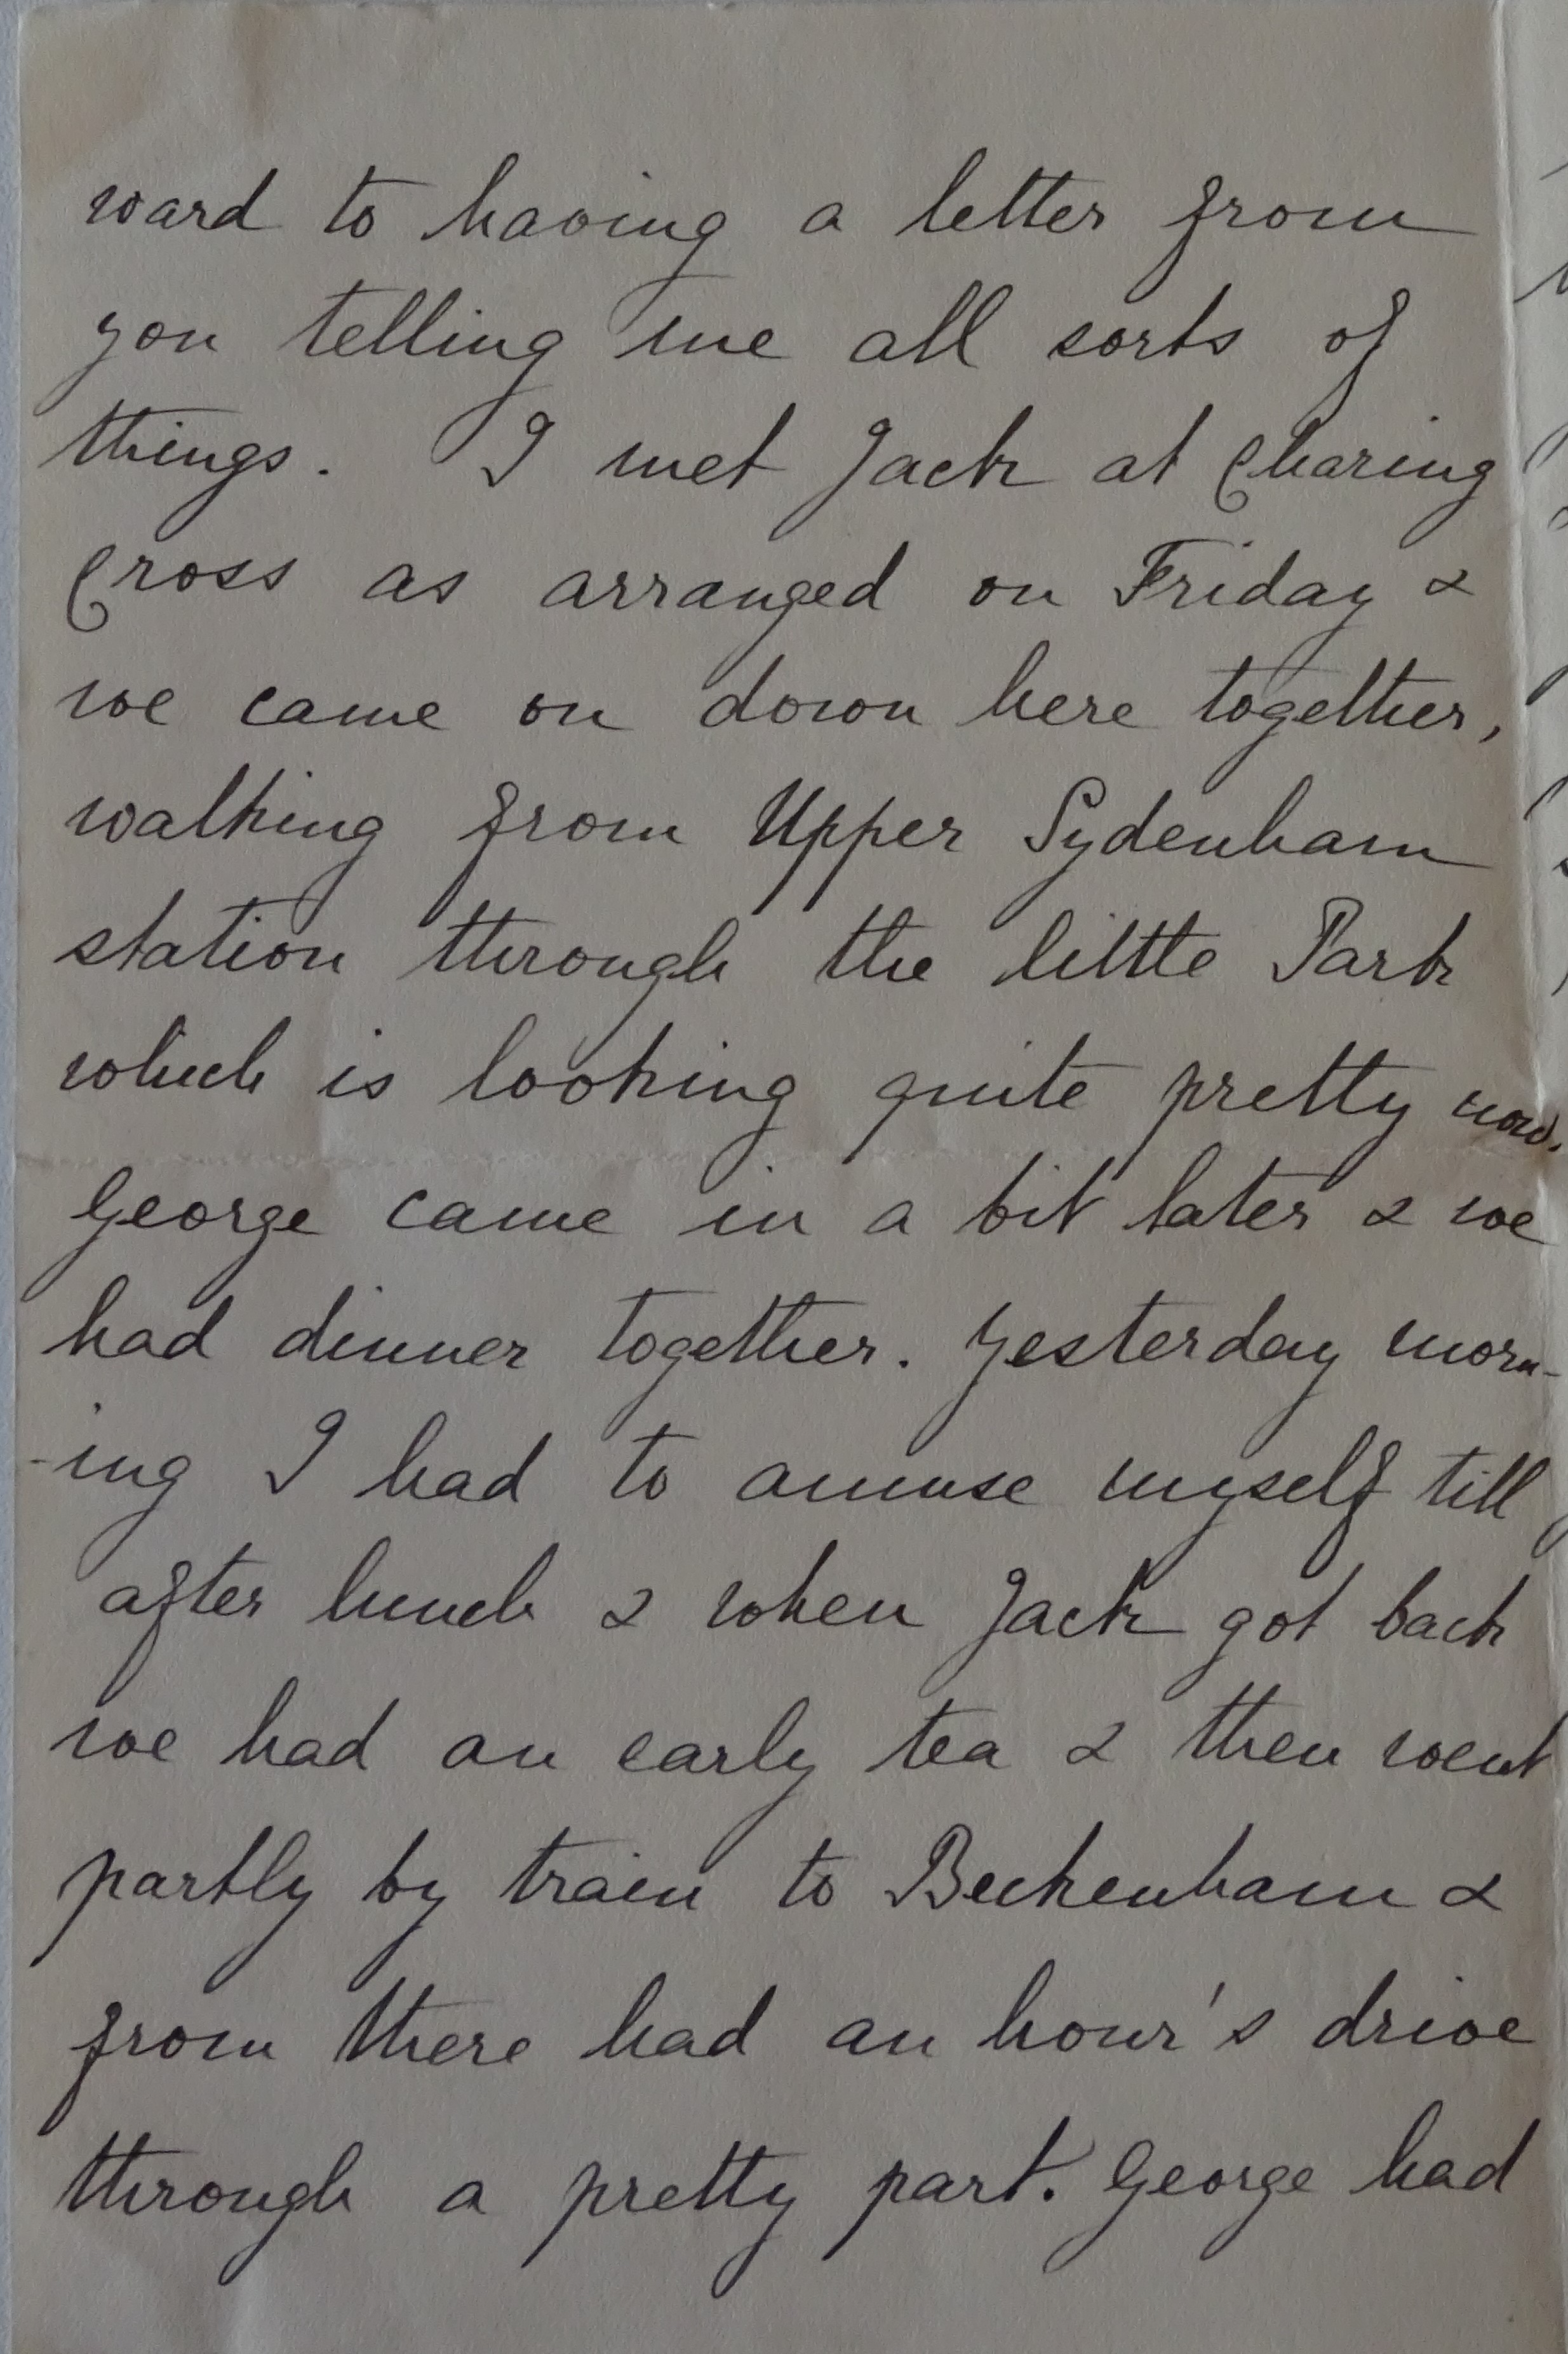 ward to having a letter from
you telling me all sorts of
things. I met Jack at Charing
Cross as arranged on Friday &
we came on down here together,
walking from Upper Sydenham
station through the little Park
which is looking quite pretty now.
George came in a bit later & we
had dinner together. Yesterday morn-
-ing I had to amuse myself till
after lunch & when Jack got back
we had an early tea & then went
partly by train to Beckenham &
from there had an hour's drive
through a pretty part. George had